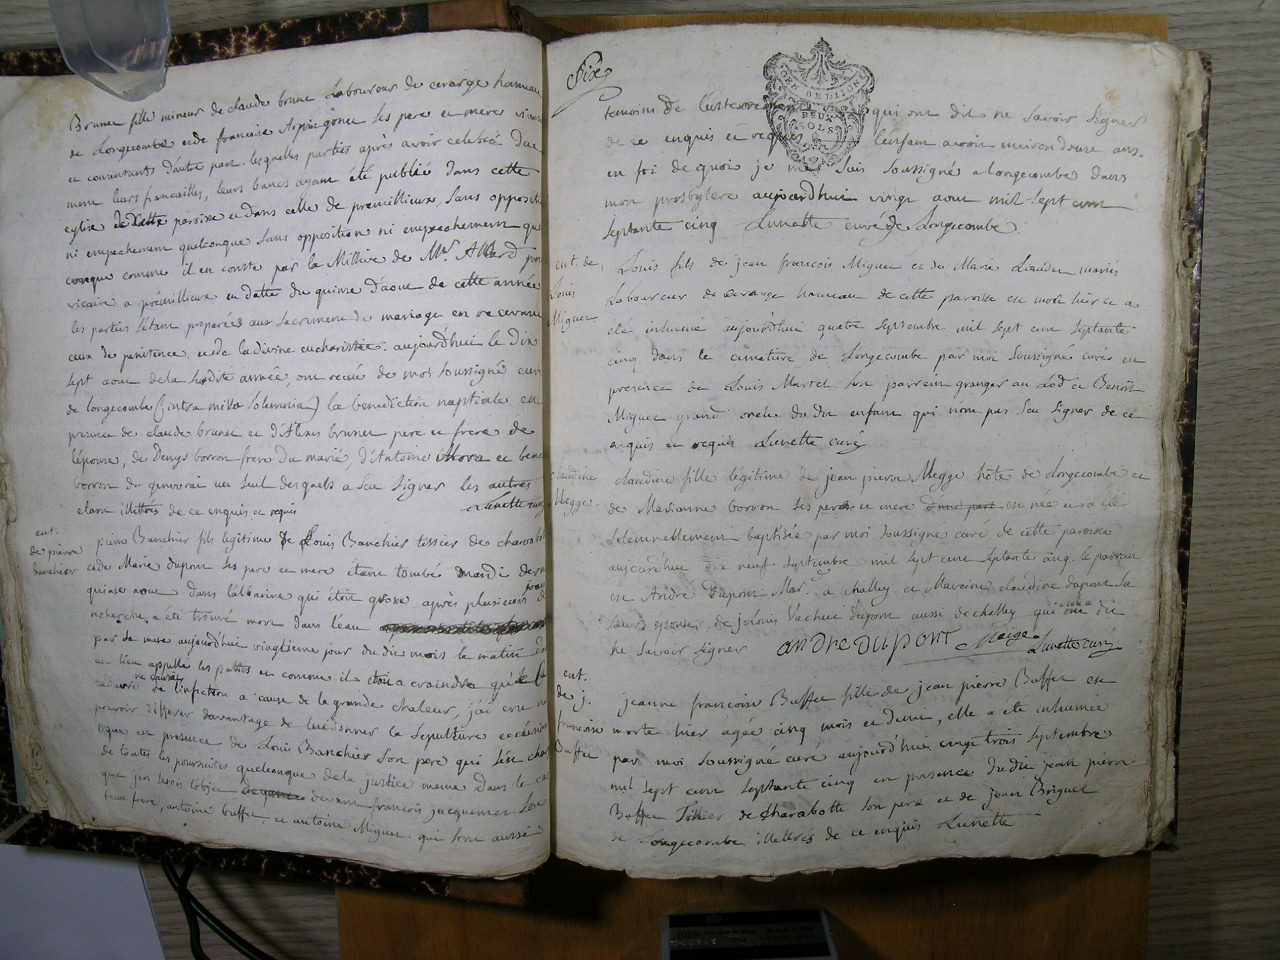 Brunet fille mineur de claude brunet Laboureur de cerarge hameau
de Longecombe et de francoise Arpin gonnet ses pere et mere
et consentants d'autre part. lesquelles parties après avoir celebré
leurs fiancailles, leurs bancs ayant été publiés dans cette
eglise de cette paroisse et dans celle de premillieux, sans opposition
ni empechement quelconque sans opposition ni empechement quel
conque comme il en conste par la Missive de Mr. Allard
vicaire a prémillieux en datte du quinze d'aout de cette année
les parties s'étant preparées aux sacrement de mariage en recevant
ceux de penitence et de la divine eucharistie. aujourd'hui le dix
sept aout de la susdite année, ont recus de moi soussigné curé
de longecombe (intra missa solemnia) la benediction nuptiale en
presence de claude brunet et d'Alexis brunet pere et frere de
l'épouse, de Denys borron frere du marié, d'Antoine
borron de genevrai un seul desquels a seu signer les autres
étant illettrés de ce enquis et requis Lunette curé
ent.
de pierre
banchier
pierre Banchier fils legitime de Louis Banchier tissier de charabotte
et de Marie dupont ses pere et mere étant tombé mardi
quinze aout dans l'albarine qui étoit grosse après plusieurs jours de
recherche a été trouvé mort dans l'eau
par sa mere aujourd'hui vingtieme jour du dit mois le matin
au lieu appellé les pattes et comme il étoit a craindre que le
cadavre ne causat de l'infection a cause de la grande chaleur, j'ai cru ne
pouvoir differer davantage de lui donner la sepulture ecclesias
tique en presence de Louis Banchier son pere qui s'est chargé
de toutes les poursuites quelconque de la justice meme dans le cas
que j'en serois l'objet devant francois jacquemet son
beau frere, antoine buffet, et antoine Miguet qui sont aussi
Six
GEN. DE DIJON
DEUX
SOLS
temoins de l'enterrement qui ont dit ne savoir signer
de ce enquis et requis l'enfant avoit environ douze ans.
en foi de quoi je me suis soussigné a longecombe dans
mon presbytere aujourd'hui vingt aout mil sept cent
septante cinq Lunette curé de Longecombe.
ent. de
Louis
Miguet
Louis fils de jean francois Miguet et de Marie Liaudet mariés
Laboureur de cerarge hameau de cette paroisse est mort hier et a
été inhumé aujourd'hui quatre septembre mil sept cent septante
cinq dans le cimetiere de Longecombe par moi soussigné curé en
presence de Louis Martel son parrein granger au dod et Benoît
Miguet grand oncle du dit enfant qui n'ont pas seu signer de ce
enquis et requis Lunette curé
claudine
Megge
claudine fille légitime de jean pierre Megge hôte de Longecombe et
de Marianne borron ses pere et mere d'une part est née et a été
solemnellement baptisée par moi soussigné curé de cette paroisse
aujourd'hui dix neuf septembre mil sept cent septante cinq. le parrein
est André dupont Mar.d a challey et Mareine claudine dupont sa
soeur épouse de Louis Vachet dupont aussi de challey qui a dit
ne savoir signer andre dupont Meige Lunette curé
ent.
de j.
francoise
Buffet
jeanne francoise Buffet fille de jean pierre Buffet est
morte hier agée cinq mois et demi, elle a été inhumée
par moi soussigné curé aujourd'hui vingt trois septembre
mil sept cent septante cinq en presence du dit jean pierre
Buffet Tissier de charabotte son pere et de jean Briguet
de Longecombe illettrés de ce enquis Lunette